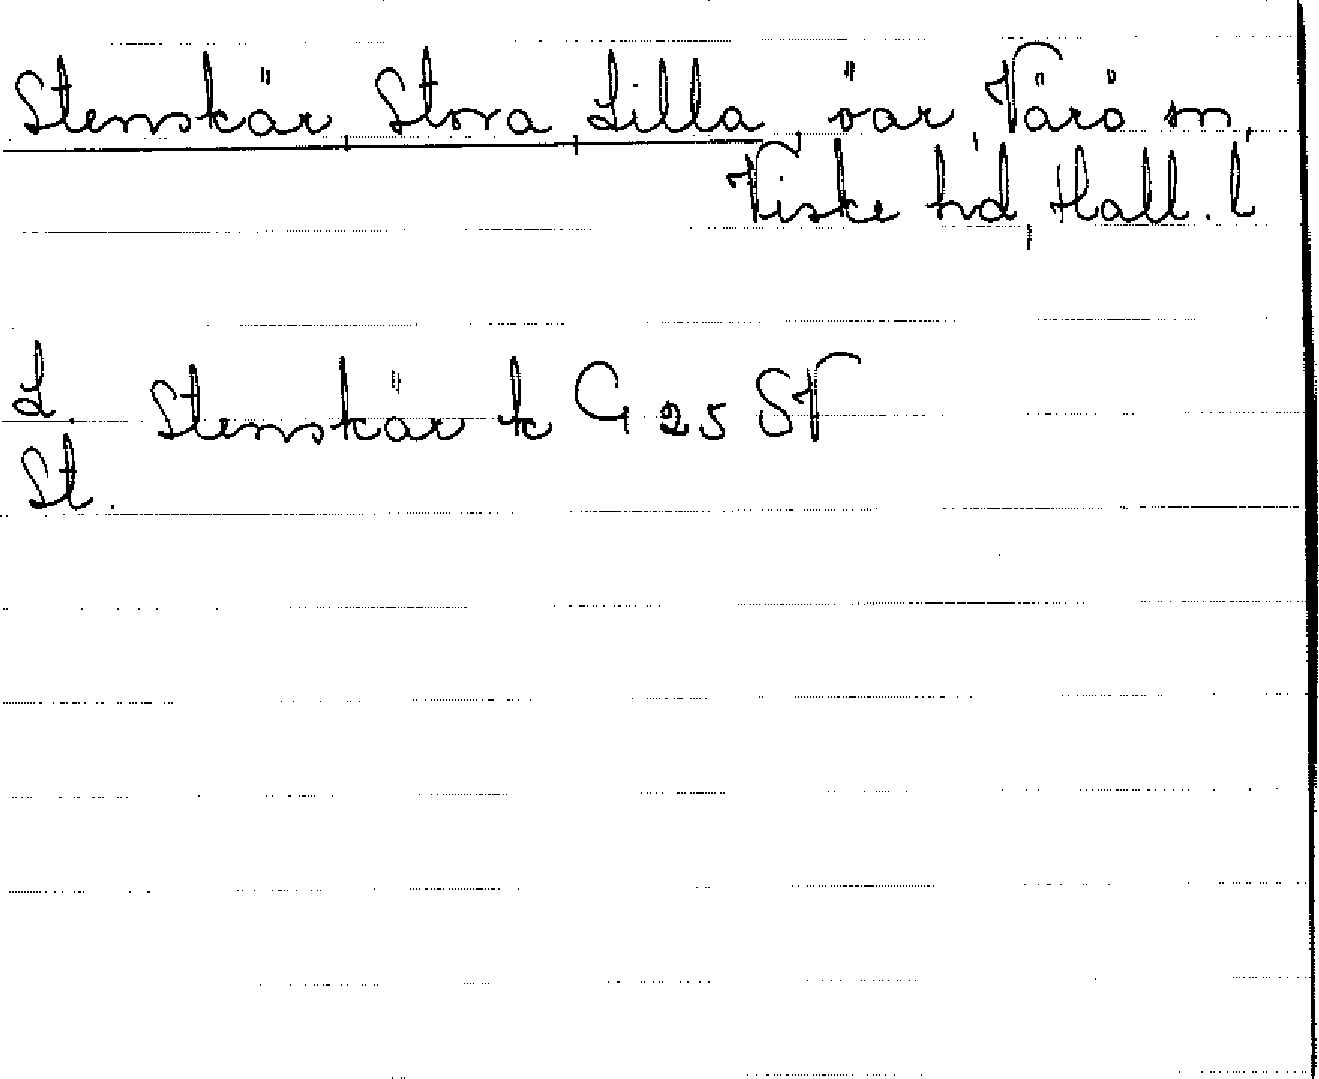 Stenskär, Stora, Lilla, öar, Värö sn,
Viske hd, Hall. l
L.
Stenskär k G 25 SV
St.